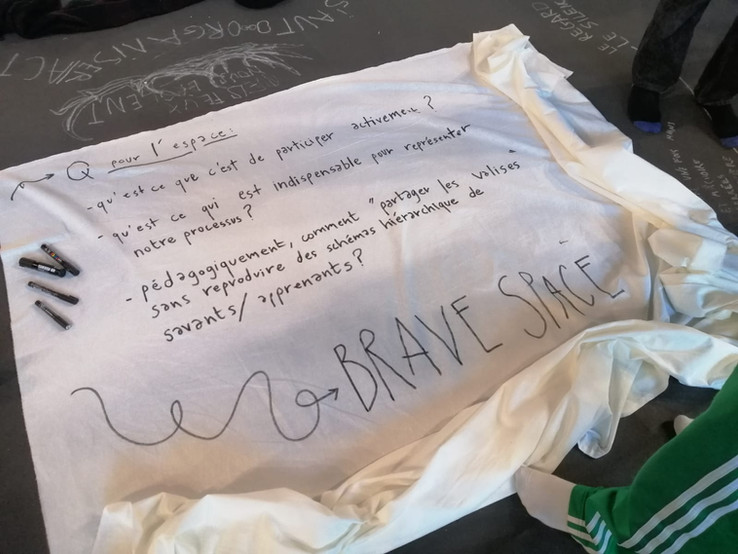 S'AUTO-ORGANIS
ACT
LE REGARD
LE SILEN
→ Q pour l'espace:
- qu'est ce que c'est de participer activement ?
- qu'est ce qui est indispensable pour représenter
notre processus ?
- pédagogiquement, comment "partager les valises"
sans reproduire des schémas hiérarchique de
savants/apprenants ?
→ BRAVE SPACE